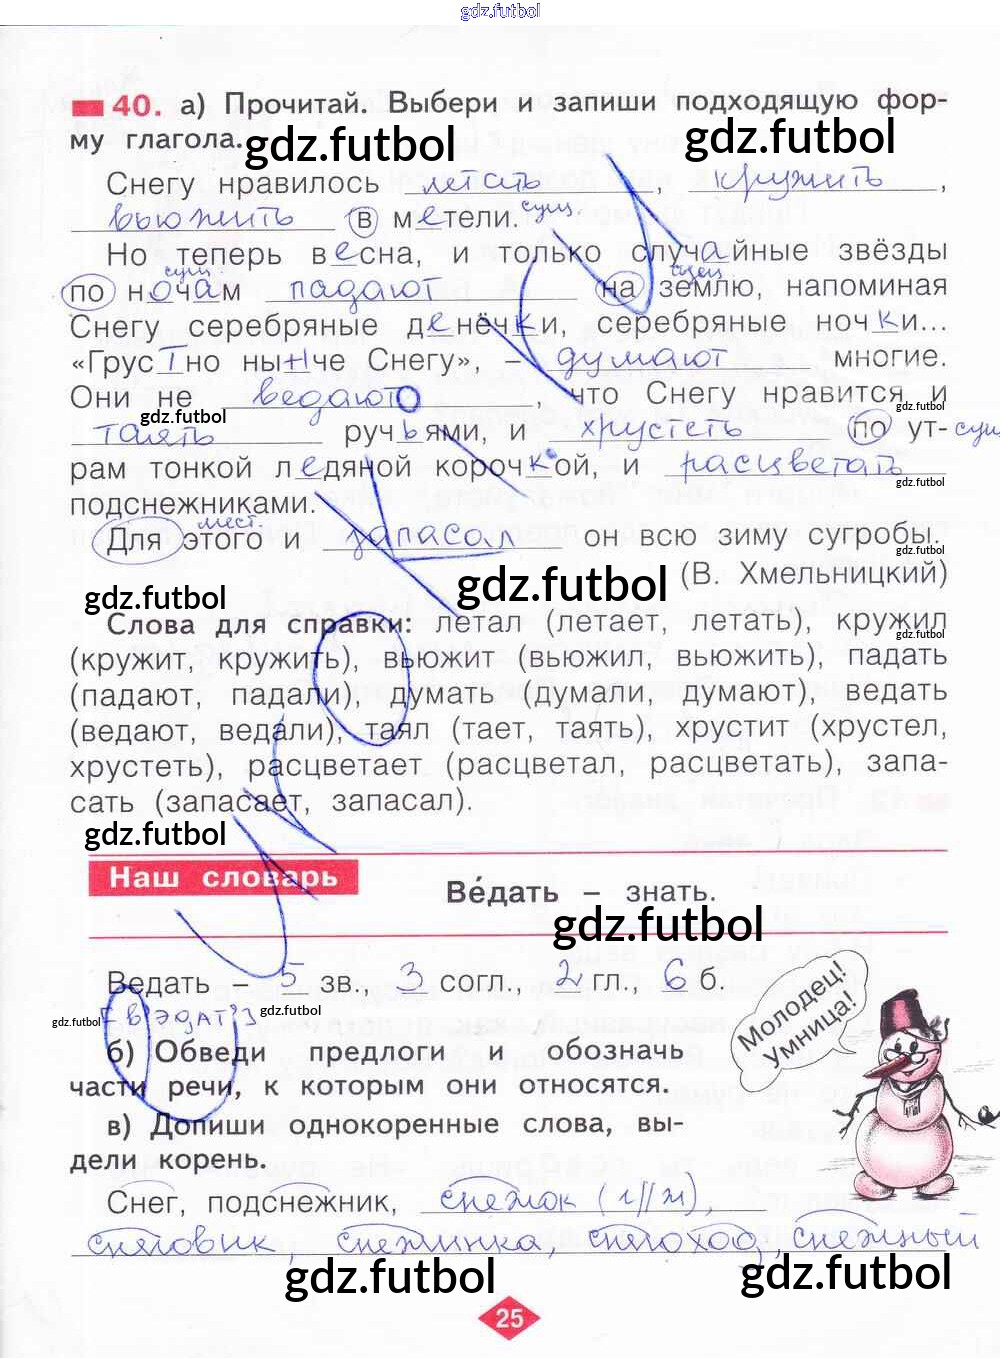 gdz.futbol
40. а) Прочитай. Выбери и запиши подходящую фор-
му глагола.
gdz.futbol gdz.futbol
Снегу нравилось летать, кружить,
вьюжить в метели. сущ
Но теперь весна, и только случайные звёзды
сущ сущ
по ночам падают на землю, напоминая
Снегу серебряные денёчки, серебряные ночки...
«Грустно нынче Снегу», – думают многие.
Они не ведают, что Снегу нравится и
gdz.futbol gdz.futbol
таять ручьями, и хрустеть по ут- сущ
рам тонкой ледяной корочкой, и расцветать
gdz.futbol
подснежниками.
мест.
Для этого и запасал он всю зиму сугробы.
gdz.futbol
(В. Хмельницкий)
gdz.futbol gdz.futbol
Слова для справки: летал (летает, летать), кружил
gdz.futbol
(кружит, кружить), вьюжит (вьюжил, вьюжить), падать
(падают, падали), думать (думали, думают), ведать
(ведают, ведали), таял (тает, таять), хрустит (хрустел,
хрустеть), расцветает (расцветал, расцветать), запа-
сать (запасает, запасал).
gdz.futbol
Наш словарь
Ве́дать – знать.
gdz.futbol
Ведать – 5 зв., 3 согл., 2 гл., 6 б.
gdz.futbol [в'эдат'] gdz.futbol
Молодец!
Умница!
б) Обведи предлоги и обозначь
части речи, к которым они относятся.
в) Допиши однокоренные слова, вы-
дели корень.
Снег, подснежник, снежок (г//ж),
снеговик, снежинка, снегоход, снежный
gdz.futbol gdz.futbol
25
уроки.ру